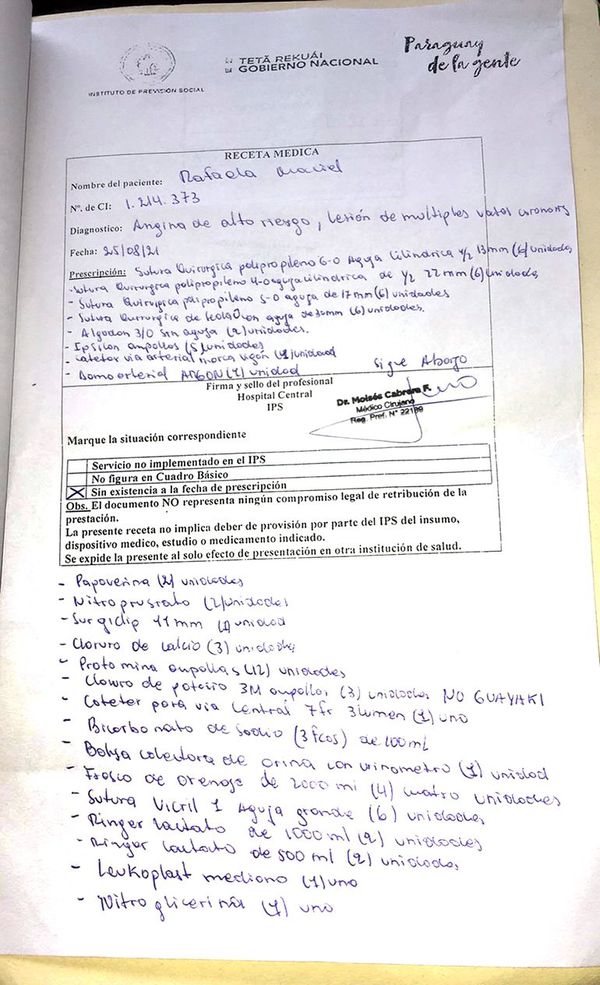 INSTITUTO DE PREVISIÓN SOCIAL
TETÃ REKUÁI
GOBIERNO NACIONAL
Paraguay
de la gente
RECETA MEDICA
Nombre del paciente: Rafaela Maciel
Nº. de CI: 1.214.373
Diagnostico: Angina de alto riesgo, Lesión de multiples vasos coronarios
Fecha: 25/08/21
Prescripción: Sutura Quirurgica polipropileno 6-0 Aguja Cilindrica 1/2 13mm (6) unidades
- Sutura Quirurgica polipropileno 4-0 aguja cilindrica de 1/2 22mm (6) unidades
- Sutura Quirurgica polipropileno 5-0 aguja de 17mm (6) unidades
- Sutura Quirurgica de aguja de mm (6) unidades.
- Algodon 3/0 Sin aguja (2) unidades.
- Ipsilon ampollas (5) unidades
- Cateter via arterial marca vigon (1) unidad
- Domo arterial ARGON (1) unidad
Sigue Abajo
Firma y sello del profesional
Hospital Central
IPS
Dr. Moisés Cabrera F.
Médico Cirujano
Reg. Prof. Nº
Marque la situación correspondiente
Servicio no implementado en el IPS
No figura en Cuadro Básico
X Sin existencia a la fecha de prescripción
Obs. El documento NO representa ningún compromiso legal de retribución de la
prestación.
La presente receta no implica deber de provisión por parte del IPS del insumo,
dispositivo medico, estudio o medicamento indicado.
Se expide la presente al solo efecto de presentación en otra institución de salud.
- Papaverina (2) unidades
- Nitroprusiato (2) unidades
- Surgiclip 11mm (1) unidad
- Cloruro de calcio (3) unidades
- Protamina ampollas (12) unidades
- Cloruro de potacio 3M ampollas (3) unidades NO GUAYAKI
- Cateter para via Central 7fr 3lumen (1) uno
- Bicarbonato de Sodio (3 fcos) de 100ml
- Bolsa colectora de orina con urinometro (1) unidad
- Frasco de drenaje de 2000 ml (4) cuatro unidades
- Sutura Vicril 1 Aguja grande (6) unidades
- Ringer lactato de 1000 ml (2) unidades
- Ringer lactato de 500 ml (2) unidades
- Leukoplast mediano (1) uno
- Nitroglicerina (1) uno